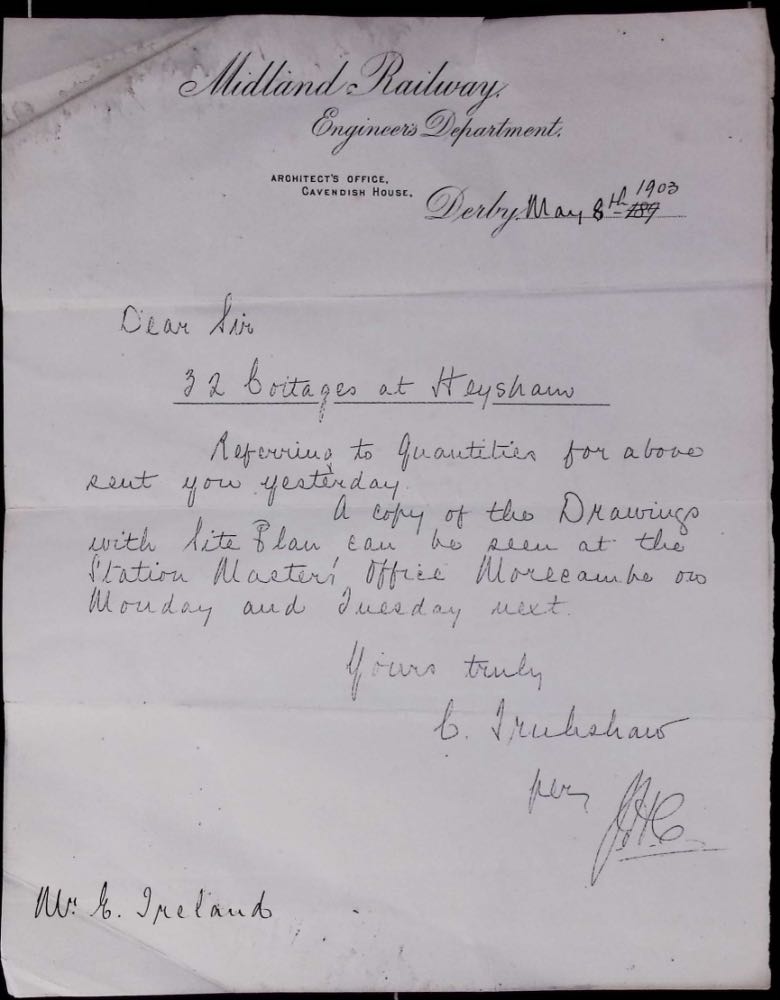 Midland Railway.
Engineer's Department.
ARCHITECT'S OFFICE,
CAVENDISH HOUSE,
Derby, May 8th 1903
Dear Sir
32 Cottages at Heysham
Referring to Quantities for above
sent you yesterday.
A copy of the Drawings
with Site Plan can be seen at the
Station Master's Office Morecambe on
Monday and Tuesday next.
Yours truly
C. Trubshaw
per
Mr. E. Ireland